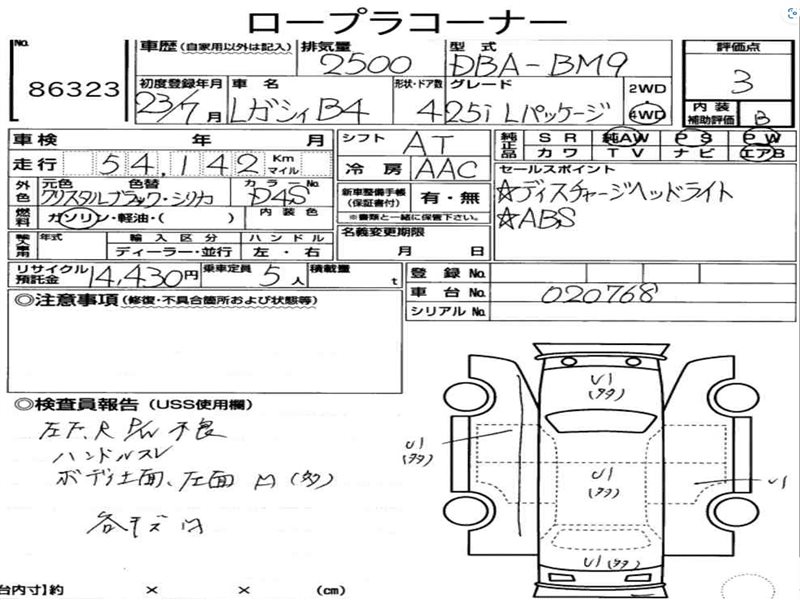 ロープラコーナー
No. 86323
車歴 (自家用以外は記入) 排気量 2500 型式 DBA-BM9 評価点 3
初度登録年月 23/7月 車名 レガシィB4 形状・ドア数 4 グレード 2.5i Lパッケージ 2WD 4WD
内装補助評価 B
車検 年 月 シフト AT 純正品 SR 純AW PS PW
カワ TV ナビ エアB
走行 54,142 Km マイル 冷房 AAC
セールスポイント
外色 元色 色替 クリスタルブラック・シリカ カラーNo. D4S
新車整備手帳 (保証書付) 有・無
☆ディスチャージヘッドライト
☆ABS
燃料 ガソリン・軽油・( ) 内装色
※書類と一緒に保管下さい。
輸入車用 年式 輸入区分 ハンドル
ディーラー・並行 左・右
名義変更期限
月 日
リサイクル預託金 14,430円 乗車定員 5人 積載量 t
登録No.
車台No. 020768
シリアルNo.
◎注意事項 (修復・不具合箇所および状態等)
◎検査員報告 (USS使用欄)
左F.R P/W不良
ハンドルスレ
ボディ上面、左面 凹(多)
各キズ凹
U1
(多タ)
U1
(多タ)
U1
(多タ)
U1
U1(多タ)
台内寸]約 × × (cm)